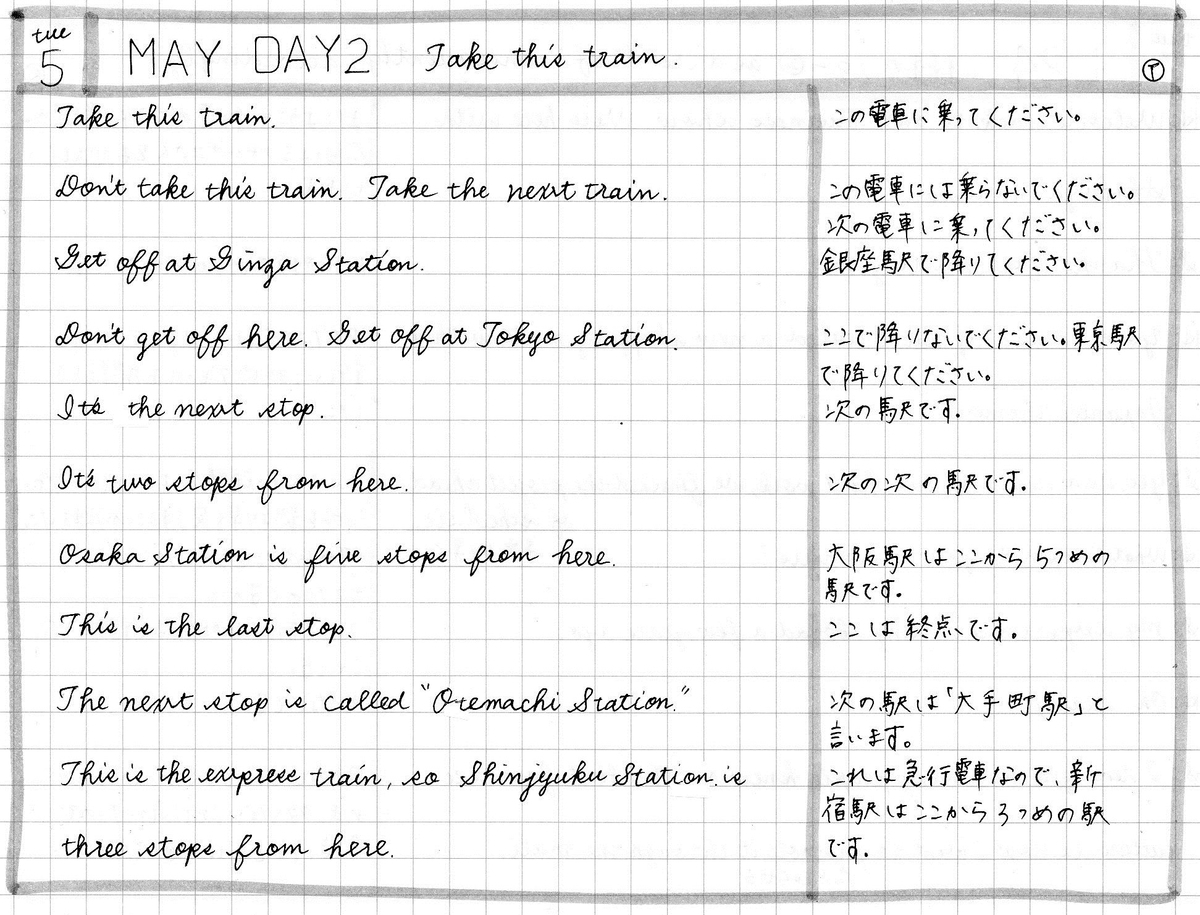 tue
5
MAY DAY2 Take this train.
T
Take this train.
この電車に乗ってください。
Don't take this train. Take the next train.
この電車には乗らないでください。
次の電車に乗ってください。
Get off at Ginza Station.
銀座駅で降りてください。
Don't get off here. Get off at Tokyo Station.
ここで降りないでください。東京駅
で降りてください。
It's the next stop.
次の駅です。
It's two stops from here.
次の次の駅です。
Osaka Station is five stops from here.
大阪駅はここから5つめの
駅です。
This is the last stop.
ここは終点です。
The next stop is called "Otemachi Station."
次の駅は「大手町駅」と
言います。
This is the express train, so Shinjyuku Station is
これは急行電車なので、新
宿駅はここから3つめの駅
three stops from here.
です。